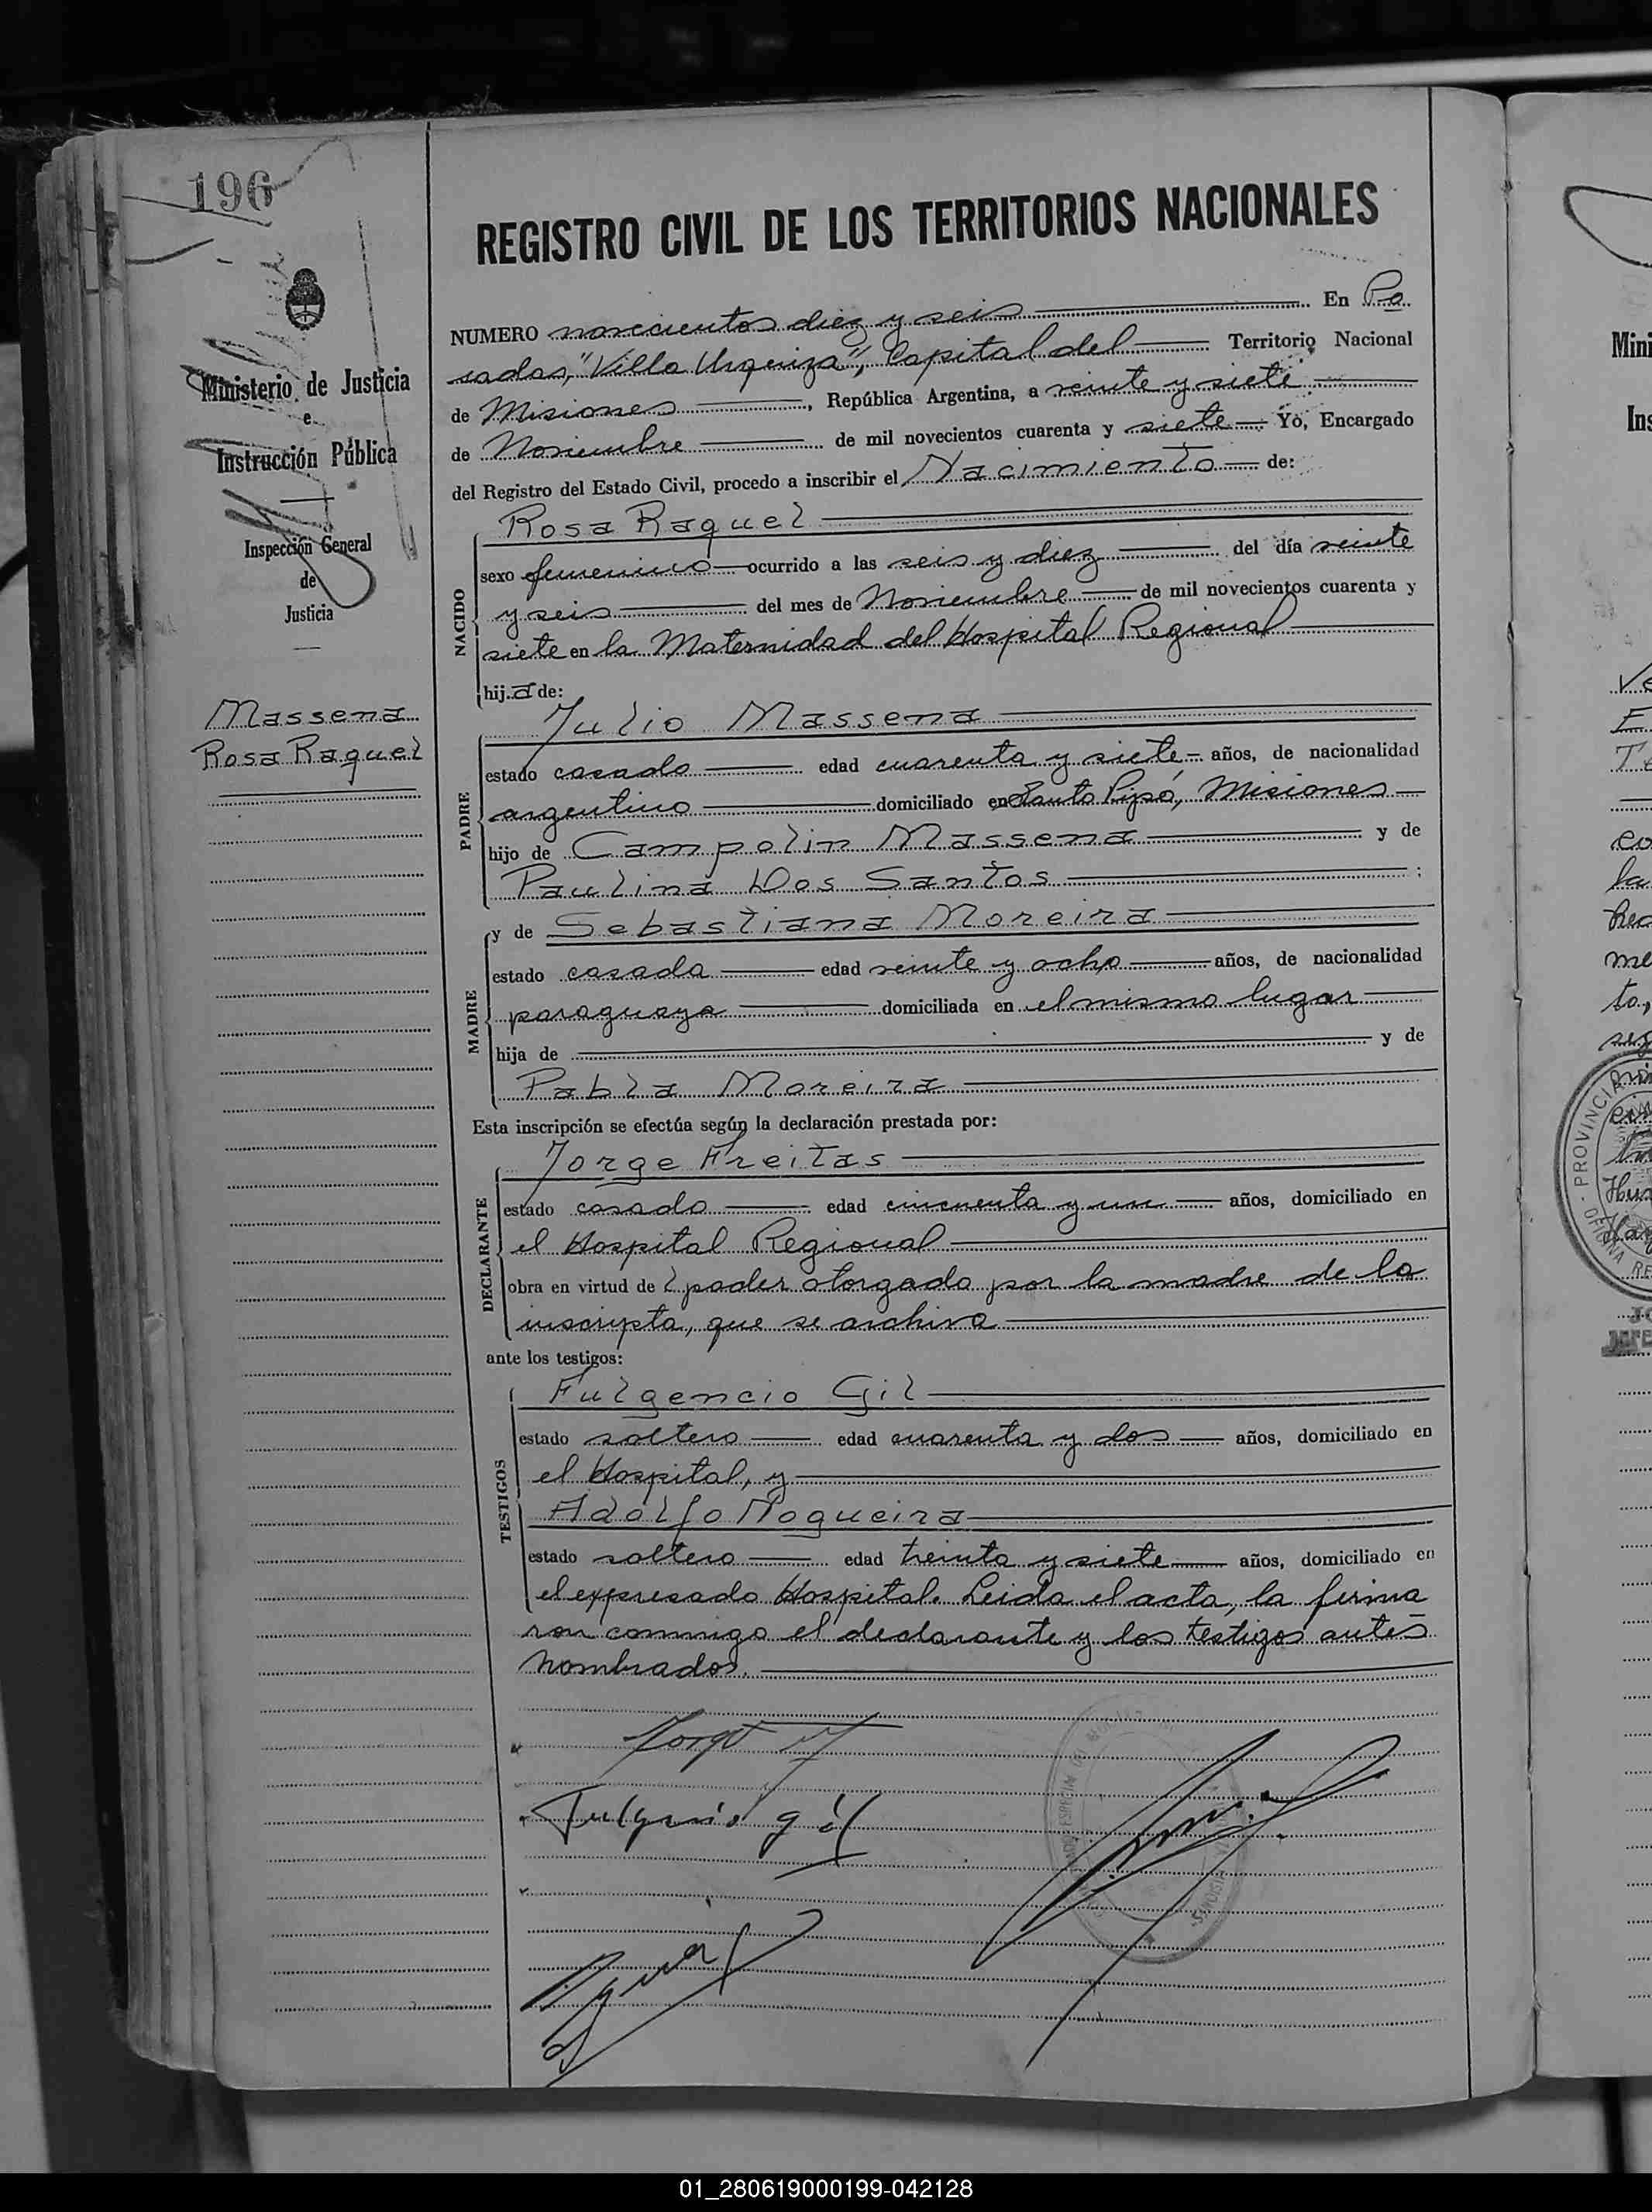 196
REGISTRO CIVIL DE LOS TERRITORIOS NACIONALES
Ministerio de Justicia
e
Instrucción Pública
Inspección General
de
Justicia
Massena
Rosa Raquel
NUMERO novecientos diez y seis En Po
sadas, "Villa Urquiza", Capital del Territorio Nacional
de Misiones, República Argentina, a veinte y siete
de Noviembre de mil novecientos cuarenta y siete Yo, Encargado
del Registro del Estado Civil, procedo a inscribir el Nacimiento de:
NACIDO
Rosa Raquel
sexo femenino ocurrido a las seis y diez del día veinte
y seis del mes de Noviembre de mil novecientos cuarenta y
siete en la Maternidad del Hospital Regional
hija de:
PADRE
Julio Massena
estado casado edad cuarenta y siete años, de nacionalidad
argentino domiciliado en Santo Pipó, Misiones
hijo de Campolin Massena y de
Paulina Dos Santos ;
MADRE
y de Sebastiana Moreira
estado casada edad veinte y ocho años, de nacionalidad
paraguaya domiciliada en el mismo lugar
hija de y de
Pabla Moreira
Esta inscripción se efectúa según la declaración prestada por:
DECLARANTE
Jorge Freitas
estado casado edad cincuenta y un años, domiciliado en
el Hospital Regional
obra en virtud de l poder otorgado por la madre de la
inscripta, que se archiva
ante los testigos:
TESTIGOS
Fulgencio Gil
estado soltero edad cuarenta y dos años, domiciliado en
el Hospital, y
Adolfo Nogueira
estado soltero edad treinta y siete años, domiciliado en
el expresado Hospital. Leida el acta, la firma
ron conmigo el declarante y los testigos antes
nombrados.
Jorge F
Fulgencio gil
01_280619000199-042128